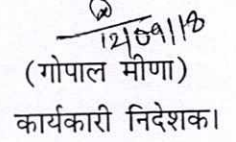 12/09/18
(गोपाल मीणा)
कार्यकारी निदेशक।